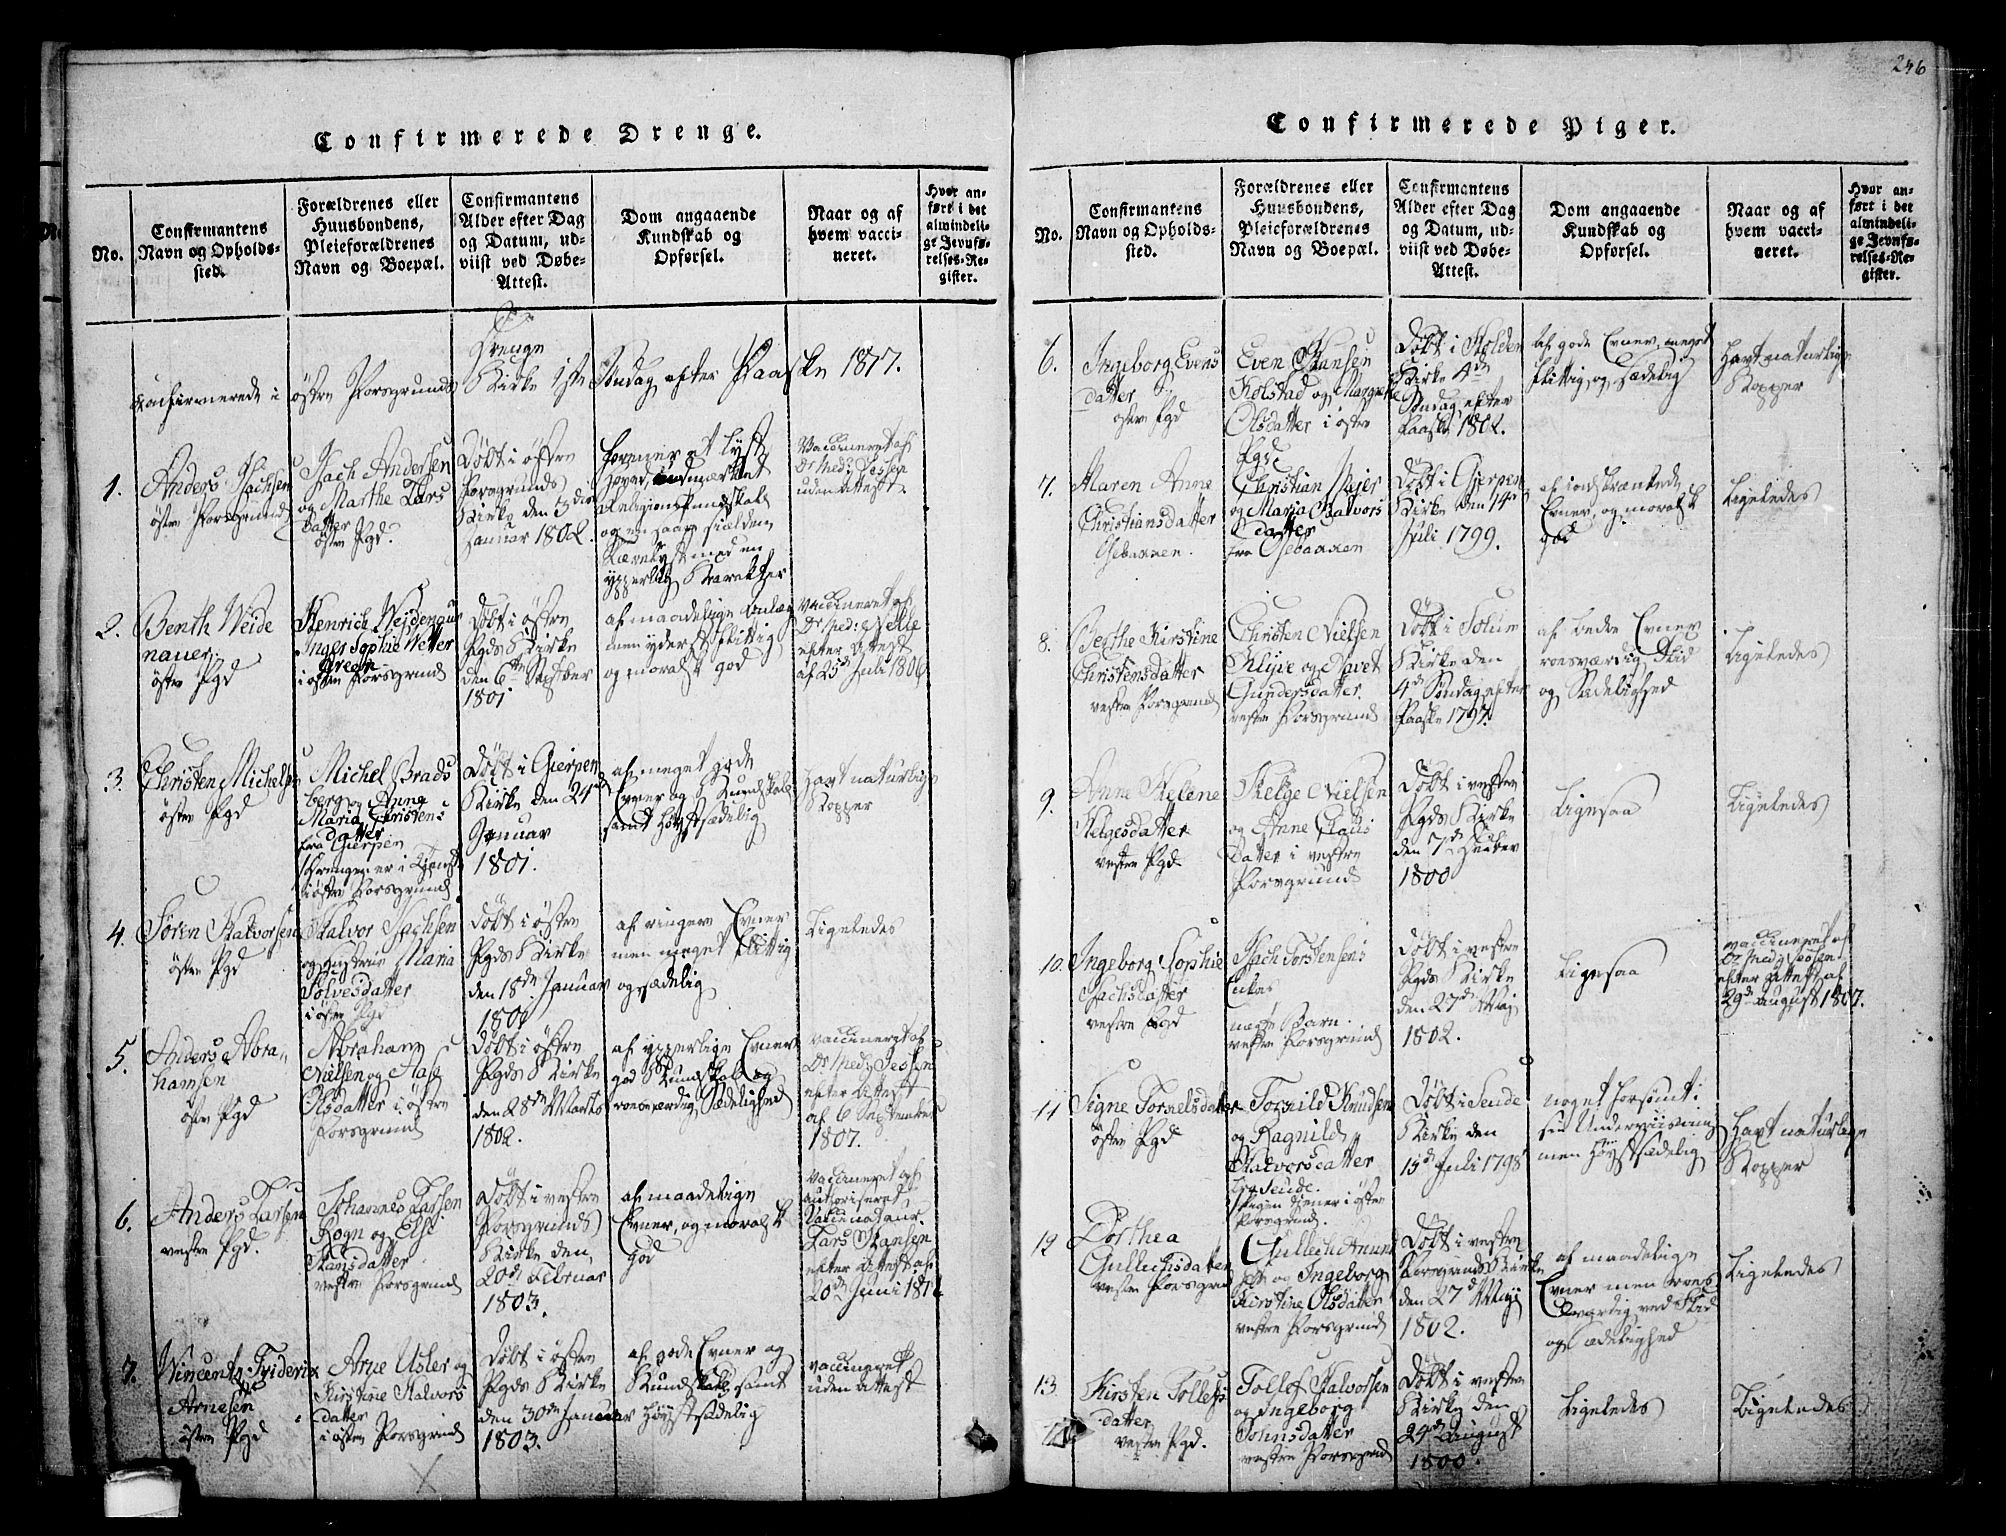 246
Confirmerede Drenge.
No.
Confirmantens
Navn og Opholds-
sted.
Forældrenes eller
Huusbondens,
Pleieforældrenes
Navn og Boepæl.
Confirmantens
Alder efter Dag
og Datum, ud-
viist ved Døbe-
Attest.
Dom angaaende
Kundskab og
Opførsel.
Naar og af
hvem vacci-
neret.
Hvor an-
ført i det
almindeli-
ge Jevnfø-
relses-Re-
gister.
Drenge
confirmerede i østre Porsgrunds Kirke 1ste Søndag efter Paaske 1817.
1.
Anders Isachsen
østre Porsgrund
Isach Andersen
og Marthe Lars
Datter
østre Pgd.
Døbt i østre
Porsgrunds
Kirke den 3die
Januar 1802.
Religionskundskab
og en saare sielden
Lærelyst med en
ypperlig Karakter
Vaccineret af
Dr Med: Jessen
uden Attest.
2.
Benth Weide
nauer.
østre Pgd
Henrich Weidenauer
Inger Sophie Vetter
Green
i østre Porsgrund
Døbt i østre
Pgds Kirke
den 6te Septber
1801
af maadelige Anlæg
men yderst flittig
og moralsk god
vaccineret af
Dr Med:
efter Attest
af 25de Juli 1806
3.
Christen Michelsen
østre Pgd
Michel Brads
berg og Anne
Maria Christens
datter
fra Gierpen
Drengen er i Tieneste
i østre Porsgrund
Døbt i Gierpen
Kirke den 24de
Januar
1801.
af meget gode
Evner og Kundskab
samt høystsædelig
Havt naturlige
Kopper
4.
Søren Halvorsen
østre Pgd
Halvor Isachsen
og Hustrue Maria
Solvesdatter
i østre Pgd
Døbt i østre
Pgds Kirke
den 18de Januar
1801
af ringere Evner
men meget flittig
og sædelig
Ligeledes
5.
Anders Abra-
hamsen
østre Pgd
Abraham
Nielsen og Aase
Olsdatter i østre
Porsgrund
Døbt i østre
Pgds Kirke
den 28de Marts
1802.
af ypperlige Evner
god Kundskab og
roesværdig Sædelighed
vaccineret af
Dr Med: Jessen
efter Attest
af 6 September
1807.
6.
Anders Larsen
vestre Pgd.
Johannes Larsen
Rogn og Else
Hansdatter
vestre Porsgrund
Døbt i vestre
Porsgrunds
Kirke den
20de Februar
1803.
af maadelige
Evner, og moralsk
god
vaccineret af
authoriseret
Vaccinateur
Lars Hansen
efter Attest af
20de Juni 181
7.
Wincents Frideric
Arnesen
østre Pgd
Arne Usler og
Kirstine Halvors
datter
i østre Porsgrund
Døbt i østre
Pgds Kirke
den 30de Januar
1803.
af gode Evner og
Kundskab samt
høystsædelig
vaccineret
uden Attest
Confirmerede Piger.
No.
Confirmantens
Navn og Opholds-
sted.
Forældrenes eller
Huusbondens,
Pleieforældrenes
Navn og Boepæl.
Confirmantens
Alder efter Dag
og Datum, ud-
viist ved Døbe-
Attest.
Dom angaaende
Kundskab og
Opførsel.
Naar og af
hvem vacci-
neret.
Hvor an-
ført i det
almindeli-
ge Jevnfø-
relses-Re-
gister.
6.
Ingeborg Evens
datter
østre Pgd
Even Hansen
Kolstad og Margrethe
Olsdatter i østre
Pgd
Døbt i Holden
Kirke 4de
Søndag efter
Paaske 1802.
af gode Evner, meget
flittig og sædelig
Havt naturlige
Kopper
7.
Maren Anne
Christiansdatter
Osebakken.
Christian Meier
og Maria Halvors
datter
fra Osebakken
Døbt i Gierpen
Kirke den 14de
Juli 1799.
af indskrænkede
Evner, og moralsk
god
Ligeledes
8.
Berthe Kirstine
Christensdatter
vestre Porsgrund
Christen Nielsen
Klyve og
Gundersdatter
vestre Porsgrund
Døbt i Solum
Kirke den
4de Søndag efter
Paaske 1797.
af bedre Evner
roesværdig Flid
og Sædelighed
Ligeledes
9.
Anne Helene
Helgesdatter
vestre Pgd
Helge Nielsen
og Anne Claus
Datter i vestre
Porsgrund
Døbt i vestre
Pgds Kirke
den 7de
1800
Ligesaa
Ligeledes
10.
Ingeborg Sophie
Isachsdatter
vestre Pgd
Isach Torstensens
Enkes
vestre Porsgrund
Døbt i vestre
Pgds Kirke
den 27de Maij
1802.
Ligesaa
vaccineret af
Dr Med: Jessen
efter Attest af
29de August 1807.
11
Signe
østre Pgd
Knudsen
og Ragnild
Halvorsdatter
fra Seude.
Pigen tiener i østre
Porsgrund.
Døbt i Seude
Kirke den
15de Juli 1798
noget forsømt i
sin Underviisning
men høystsædelig
Havt naturlige
Kopper
12
Dorthea
Gullichsdatter
vestre Porsgrund
Gullich Amund
sen og Ingeborg
Kirstine Olsdatter
vestre Porsgrund
Døbt i vestre
Porsgrunds Kirke
den 27de Maji
1802.
af maadelige
Evner men roes
værdig ved Flid
og Sædelighed
Ligeledes
13
Kirsten Tollefs
datter
vestre Pgd.
Tollef Halvorsen
og Ingeborg
Johnsdatter
vestre Porsgrund
Døbt i vestre
Kirke den
24de August
1800.
Ligeledes
Ligeledes